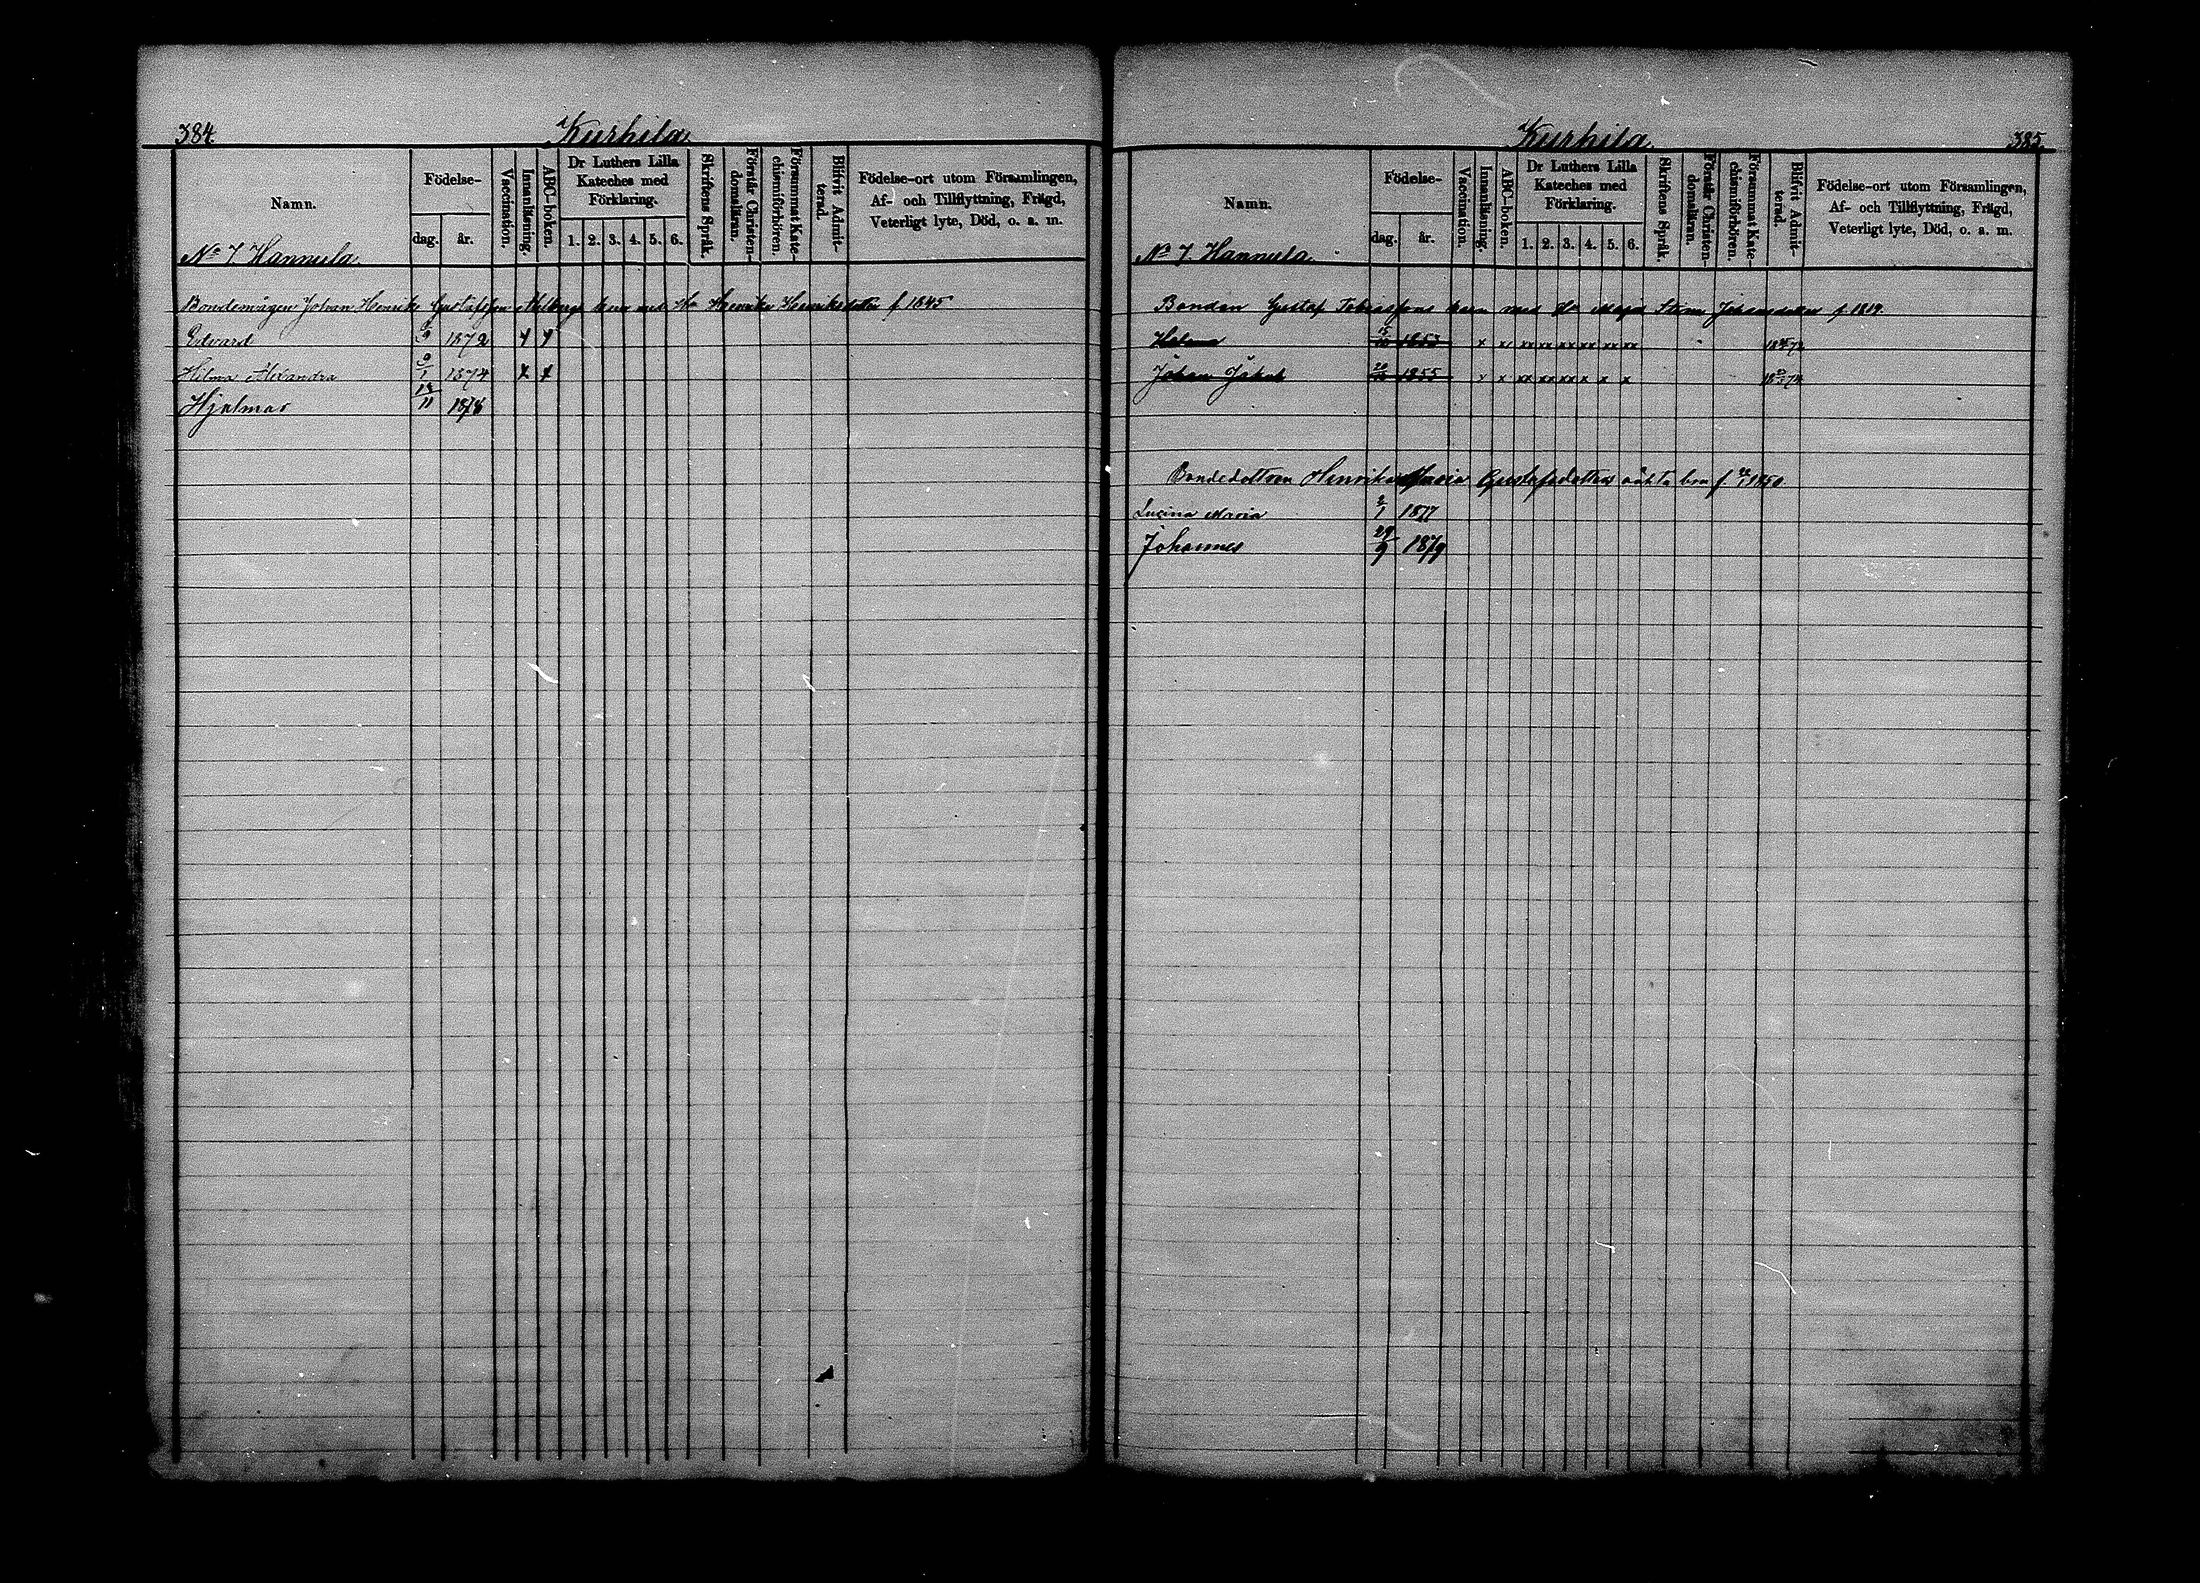 384.
Kurhila.
Namn.
Födelse-
dag.
år.
Vaccination.
Innanläsning.
ABC-boken.
Dr Luthers Lilla
Kateches med
Förklaring.
1. 2. 3. 4. 5. 6.
Skriftens Språk.
Förstår Christen-
domsläran.
Försummat Kate-
chismiförhören.
Blifvit Admit-
terad.
Födelse-ort utom Församlingen,
Af- och Tillflyttning, Frägd,
Veterligt lyte, Död, o. a. m.
No 7. Hannula.
Bondemågen Johan Henrik Gustafsson barn med Henrika Henriksdotter f 1845
Edvard 1872 x x
Hilma Alexandra 9/1 1874 x x
Hjalmar 18/11 1878
Kurhila.
385.
Namn.
Födelse-
dag.
år.
Vaccination.
Innanläsning.
ABC-boken.
Dr Luthers Lilla
Kateches med
Förklaring.
1. 2. 3. 4. 5. 6.
Skriftens Språk.
Förstår Christen-
domsläran.
Försummat Kate-
chismiförhören.
Blifvit Admit-
terad.
Födelse-ort utom Församlingen,
Af- och Tillflyttning, Frägd,
Veterligt lyte, Död, o. a. m.
No 7. Hannula.
Bonden Gustaf Tobiassons barn med Maja Stina Johansdotter f 1819.
1853 x x xx xx xx xx xx xx
Johan Jakob 1855 x x xx xx xx x x x
Bondedottren Henrika Maria Gustafsdotters oäkta barn f. 1850
Lucina Maria 2/1 1877
Johannes 29/9 1879